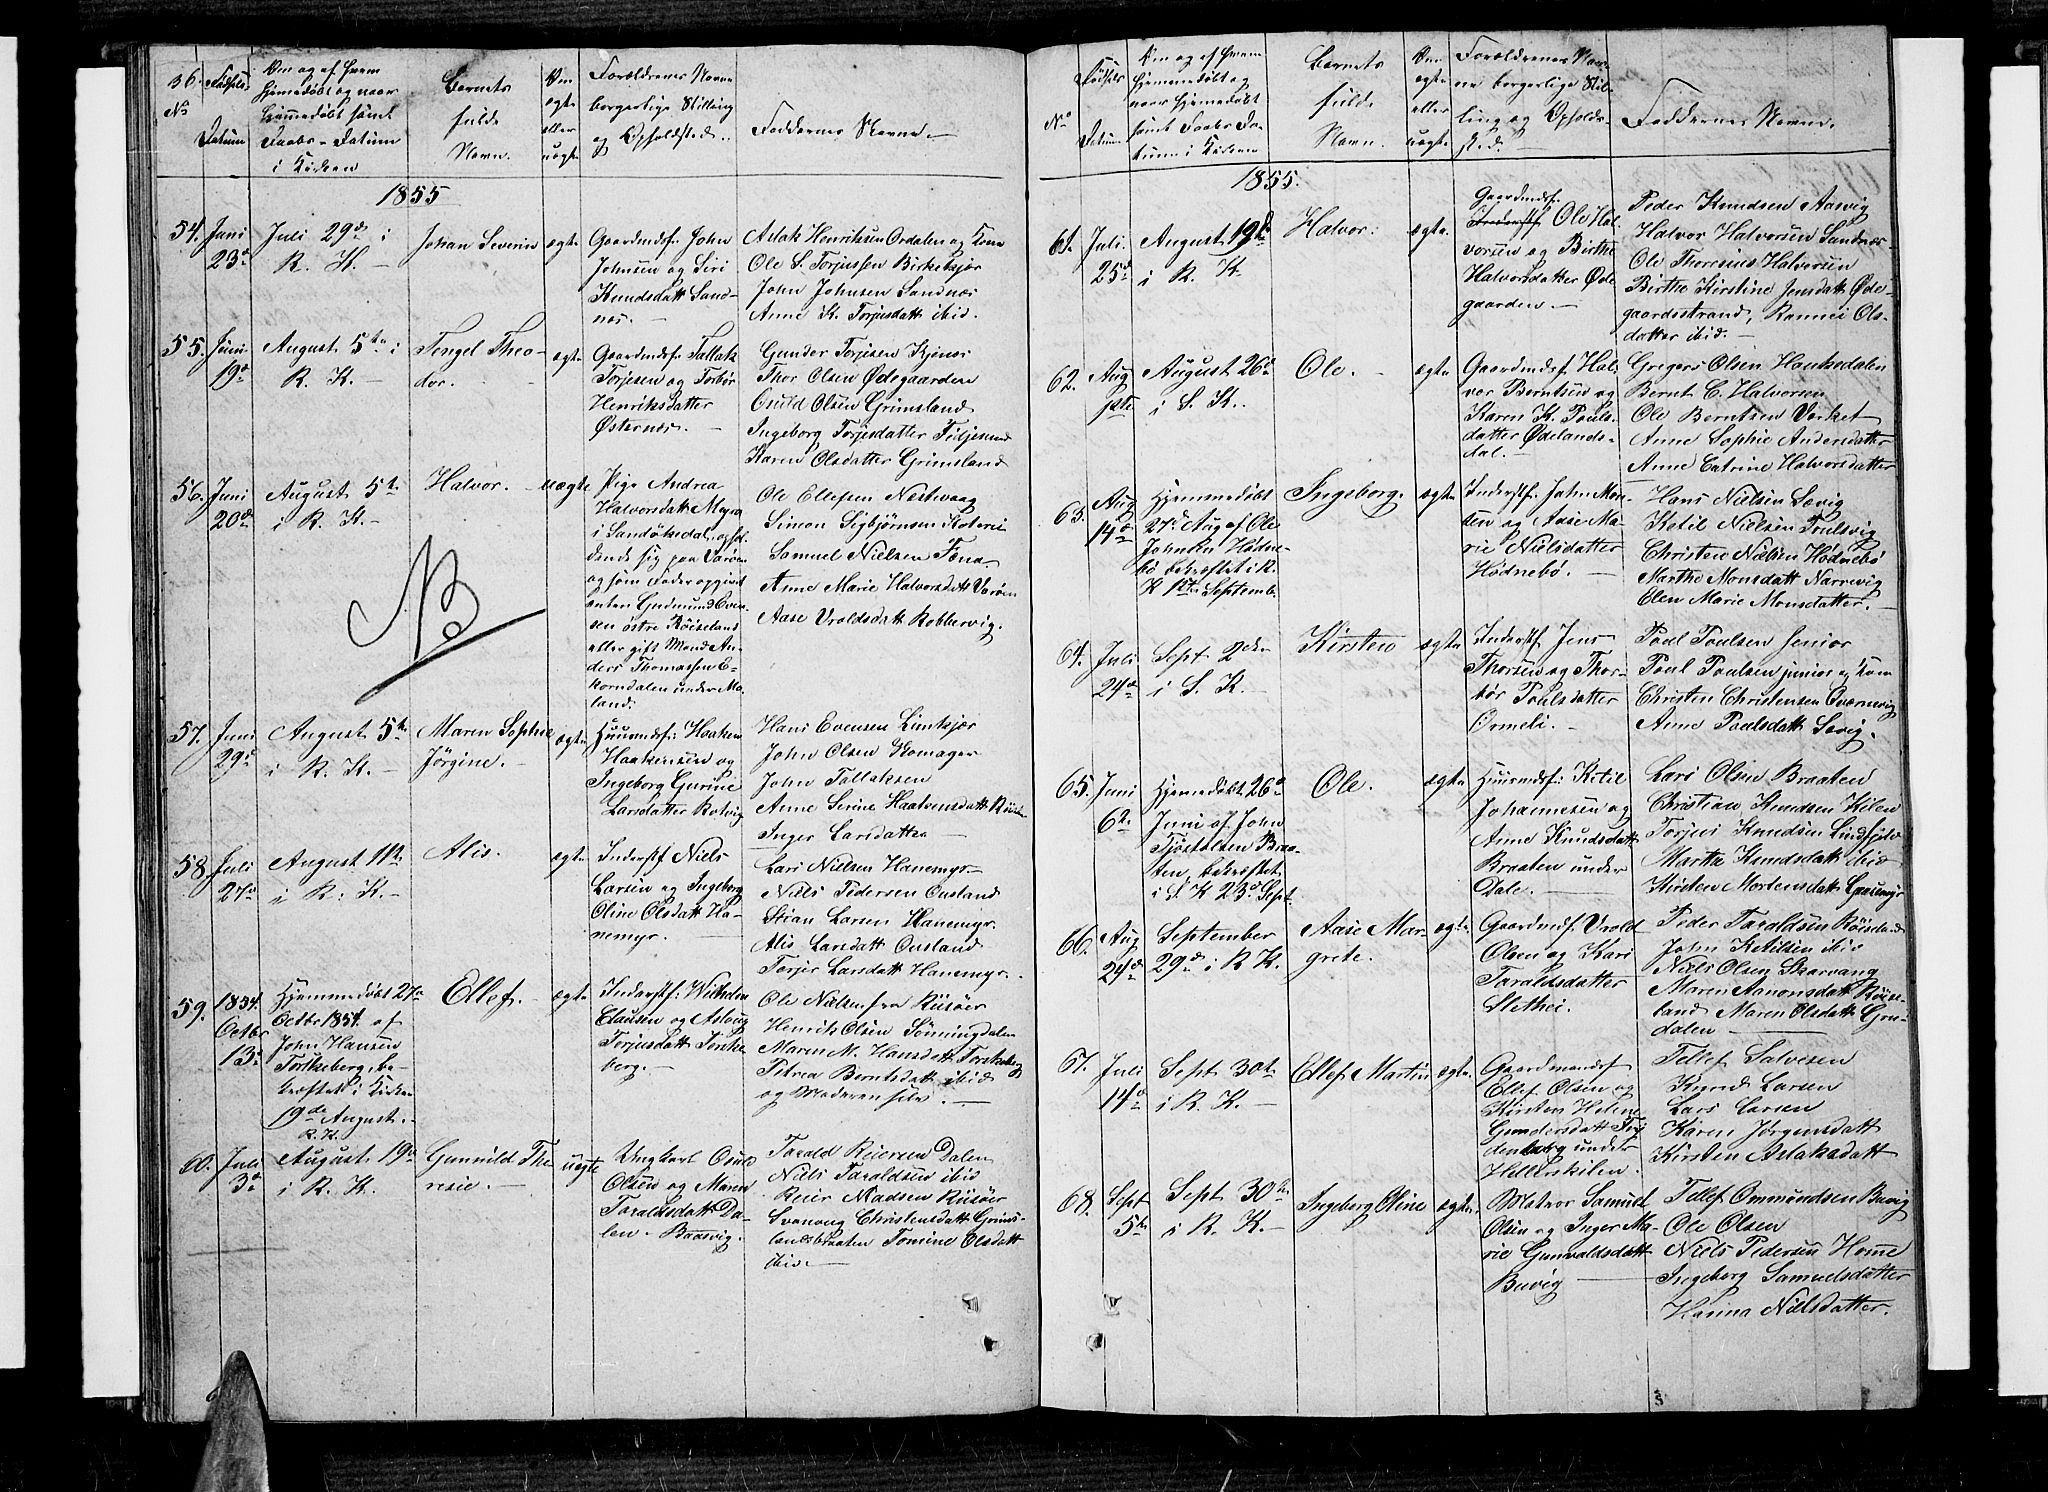 36.
No
Fødsels-
Datum
Om og af Hvem
hjemmedøbt og naar
hjemmedøbt samt
Daabs-Datum
i Kirken
Barnets
fulde
Navn.
Om
ægte
eller
uægte
Forældrenes Navne
borgerlige Stilling
og Opholdsted.
Faddernes Navne.
1855
54.
Juni
23d
Juli 29de i
R. K.
Johan Severin
ægte
Gaardmdsf. John
Johnsen og Siri
Knudsdatt Sand-
næs.
Aslak Henriksen Ordalen og Kone
Ole S. Torjussen Birketsjør
John Johnsen Sandnæs
Anne K. Torjusdatt ibid.
55.
Juni
19d
August 5te i
R. K.
Tengel Theo-
dor.
ægte
Gaardmdsf. Tallak
Torjesen og Torbør
Henriksdatter
Østernæs.
Gunder Torjesen
Thor Olsen Ødegaarden
Osuld Olsen Grimsland
Ingeborg Torjesdatter
Karen Olsdatter Grimsland
56.
Juni
20de
August 5te
i R. K.
Halvor.
uægte
Pige Andrea
Halvorsdatt Myra
i Sandøkedal, ophol-
dende sig paa Varøen
og som Fader opgivet
enten Gudmund Even-
sen østre Røiseland
eller gift Mand An-
ders Thomassen E-
korndalen under Mo-
land.
Ole Ellefsen Nestvaag
Simon Sigbjørnsen
Samuel Nielsen Fone
Anne Marie Halvorsdatt Varøen
Aase Vroldsdatt Robbervig.
NB
57.
Juni
29d
August 5te
i R. K.
Maren Sophie
Jørgine.
ægte
Huusmdsf. Haaken
Haakensen og
Ingeborg Gurine
Larsdatter Rotvig
Hans Evensen Limkjær
John Olsen Komager
John Tallaksen
Anne Serine Haakensdatt
Inger Larsdatter
58.
Juli
27de
August 11te
i R. K.
Alis.
ægte
Inderstf Niels
Larsen og Ingeborg
Oline Olsdatt Ha-
nemyr.
Lars Nielsen Hanemyr
Niels Pedersen Ousland
Stian Larsen Hanemyr.
Alis Larsdatt Ousland
Torjer Larsdatt Hanemyr.
59.
1854.
Octbr
13d
Hjemmedøbt 27de
Octbr 1854. af
John Hansen
Torskeberg, be-
kræftet i Kirken
19de August.
R. K.
Ellef.
ægte
Inderstf: Wilhelm
Clausen og Asborg
Torjusdatt Torske-
berg.
Ole Nielsen fra Riisøer
Henrik Olsen Sønningdalen
Maren M. Hansdatt Torskeberg
Petrea Berntsdatt ibid
og Moderen selv.
60.
Juli
3d
August 19de
i R. K.
Gunnild The-
resie.
uægte
Ungkarl Osul
Olsen og Maren
Taraldsdatt Da-
len. Baasvig.
Tarald Reiersen Dalen
Niels Taraldsen ibid
Reier Madsen Riisøer
Svanaug Christensdatt Grims-
landsbraaten Tomine Olsdatt
ibid.
No
Fødsels
Datum
Om og af Hvem
hjemmedøbt og
naar hjemmedøbt
samt Daabs Da-
tum i Kirken
Barnets
fulde
Navn.
Om
ægte
eller
uægte
Forældrenes Nav-
ne borgerlige Stil-
ling og Opholds-
sted.
Faddernes Navne.
1855.
61.
Juli
25d
August 19de
i R. K.
Halvor.
ægte
Gaardmdsf.
Inderstf Ole Hal-
vorsen og Birthe
Halvorsdatter Øde-
gaarden.
Peder Knudsen Aasvig
Halvor Halvorsen Sandnæs
Ole Theresius Halvorsen
Birthe Kirstine Jensdatt Øde-
gaardsstrand, Rannei Ols-
datter ibid.
62.
Aug
1ste
August 26d
i S. K.
Ole.
ægte
Gaardmdsf. Hal-
vor Berntsen og
Karen K. Pouls-
datter Ødelands-
dal.
Gregers Olsen Haukedalen
Bernt C. Halvorsen
Ole Berntsen Verket
Anne Sophie Andersdatter
Anne Catrine Halvorsdatter
63.
Aug
14de
Hjemmedøbt
27de Aug af Ole
Johnsen Hødne-
bø bekræftet i R.
K 1ste Septemb.
Ingeborg.
ægte
Inderstf. John Mon-
sen og Aase Ma-
rie Nielsdatter
Hødnebø.
Hans Nielsen Sævig
Ketil Nielsen Poulsvig
Christen Nielsen Hødnebø
Marthe Monsdatt Narrevig
Elen Marie Monsdatter.
64.
Juli
24de
Sept 2den
i S. K.
Kirsten
ægte
Inderstf. Jens
Thorsen og Thor-
bør Poulsdatter
Ormeli.
Poul Poulsen senior
Poul Poulsen junior og Kone
Christen Christensen Qværnvig
Anne Poulsdatt Sævig.
65.
Juni
6te
Hjemmedøbt 26d
Juni af John
Tjøstolsen Braa-
ten, bekræftet
i S. K 23d Sept.
Ole.
ægte
Huusmdsf. Ketil
Johannesen og
Anne Knudsdatt
Braaten under
Dale.
Lars Olsen Braaten
Christian Knudsen Kilen
Torjus Knudsen
Martha Knudsdatt ibid
Kirsten Mortensdatt
66.
Aug
24d
September
29d i R K.
Aase Mar-
grete.
ægte
Gaardmdsf. Vrold
Olsen og Kari
Taraldsdatter
Slethei.
Peder Taraldsen Røiseland
John Ketilsen ibid
Niels Olsen Skarvang
Maren Aanonsdatt Røise-
land Maren Olsdatt Gru-
dalen
67.
Juli
14d
Sept 30te
i R. K.
Ellef Martin
ægte
Gaardmandsf
Ellef Olsen og
Kirsten Helene
Gundersdatt
under
Hellerskilen.
Tellef Salvesen
Knud Larsen
Lars Larsen
Karen Jørgensdatt
Kirsten Aslaksdatt
68.
Sept
5te
Sept 30te
i R. K.
Ingeborg Oline
ægte
Matros Samuel
Olsen og Inger Ma-
rie Gunvaldsdatt
Buvig
Tellef Ommundsen Buvig
Ole Olsen
Niels Pedersen Home
Ingeborg Samuelsdatter
Hasina Nielsdatter.